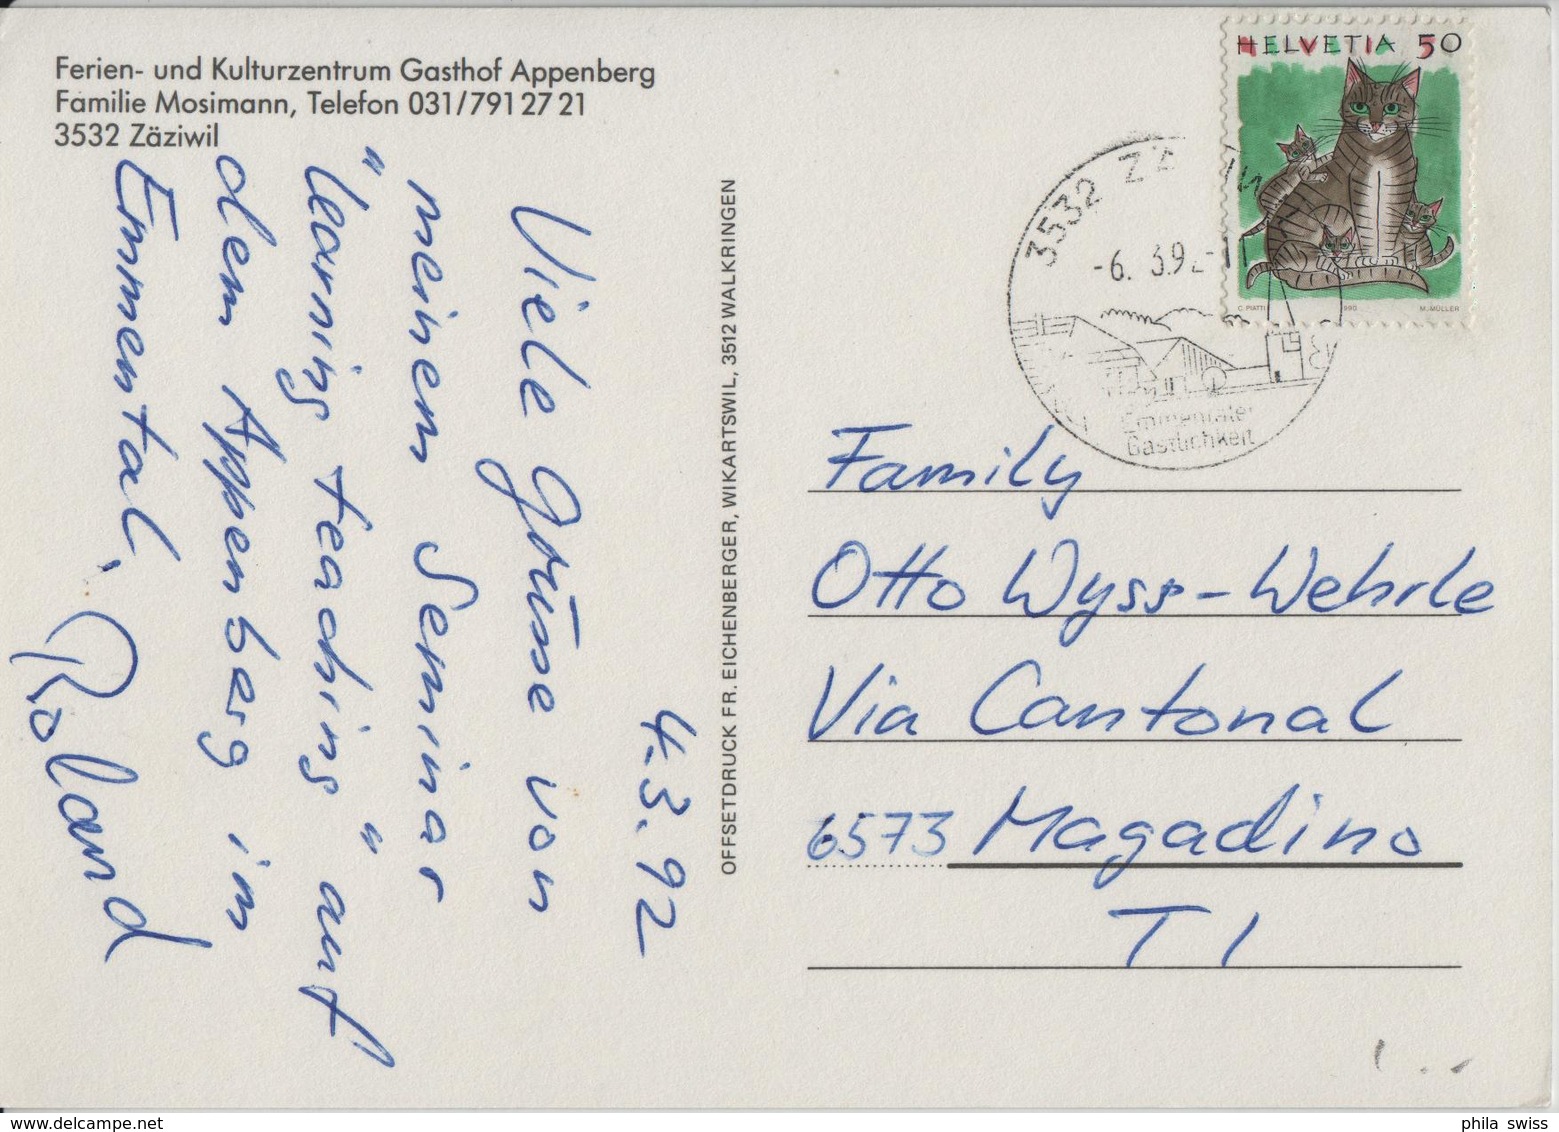 Ferien- und Kulturzentrum Gasthof Appenberg
Familie Mosimann, Telefon 031/791 27 21
3532 Zäziwil
4.3.92
Viele Grüsse von
meinem Seminar
"learning teaching" auf
dem Appenberg im
Emmental.
Roland
OFFSETDRUCK FR. EICHENBERGER, WIKARTSWIL, 3512 WALKRINGEN
HELVETIA 50
C. PIATTI 1990 M. MÜLLER
3532
-6. 3.92-11
Emmentaler
Gastlichkeit
Family
Otto Wyss-Wehrle
Via Cantonal
6573 Magadino
TI
phila swiss